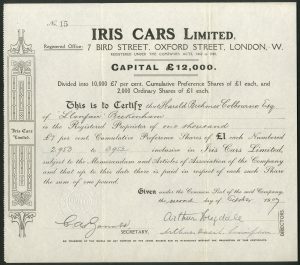 No. 15
IRIS CARS LIMITED.
Registered Office: 7 BIRD STREET, OXFORD STREET, LONDON, W.
REGISTERED UNDER THE COMPANIES ACTS, 1862 to 1900.
CAPITAL £12,000.
Divided into 10,000 £7 per cent. Cumulative Preference Shares of £1 each, and
2,000 Ordinary Shares of £1 each.
This is to Certify that Harold Esq
of
is the Registered Proprietor of one thousand
£7 per cent Cumulative Preference Shares of £1 each Numbered
to inclusive in Iris Cars Limited,
subject to the Memorandum and Articles of Association of the Company
and that up to this date there is paid in respect of each such Share
the sum of one pound
Given under the Common Seal of the said Company,
the second day of October 1907
Arthur
SECRETARY.
Iris Cars
Limited.